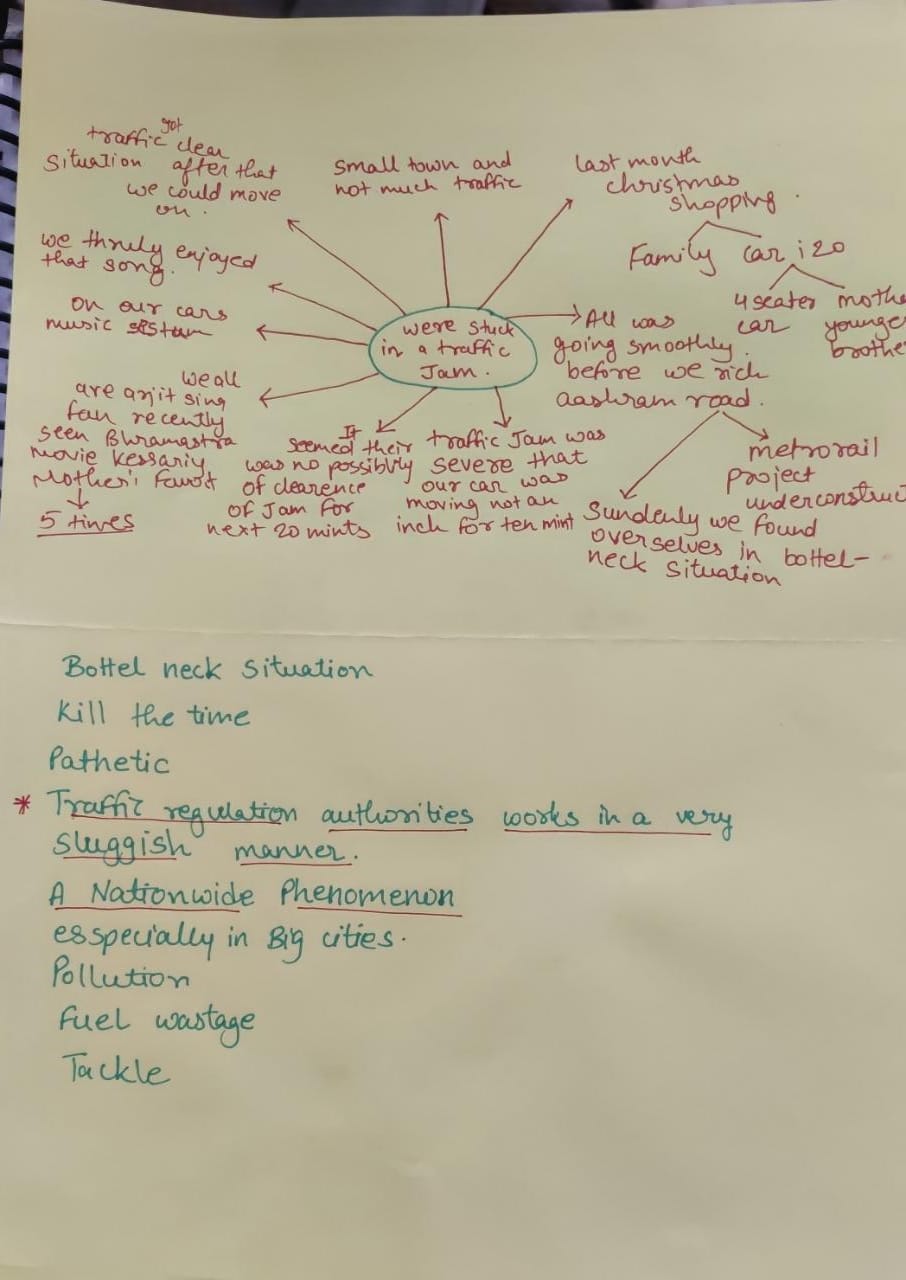 got
traffic clear
situation after that
we could move
on.
small town and
not much traffic
last month
christmas
shopping.
Family car i20
4 seater
car
younger
we thruly enjoyed
that song.
on our cars
music sistem
were stuck
in a traffic
Jam.
All was
going smoothly.
before we rich
aashram road.
we all
are arjit sing
fan recently
seen Bhramastra
movie Kessariy
Mother's
5 times
It
seemed their
was no possiblvly
of clearence
of Jam for
next 20 mints
traffic Jam was
severe that
our car was
moving not an
inch for ten mint
metrorail
project
Sundenly we found
overselves in bottel-
neck situation
Bottel neck situation
Kill the time
Pathetic
* Traffic regulation authorities works in a very
sluggish manner.
A Nationwide Phenomenon
esspecially in Big cities.
Pollution
Fuel wastage
Tackle